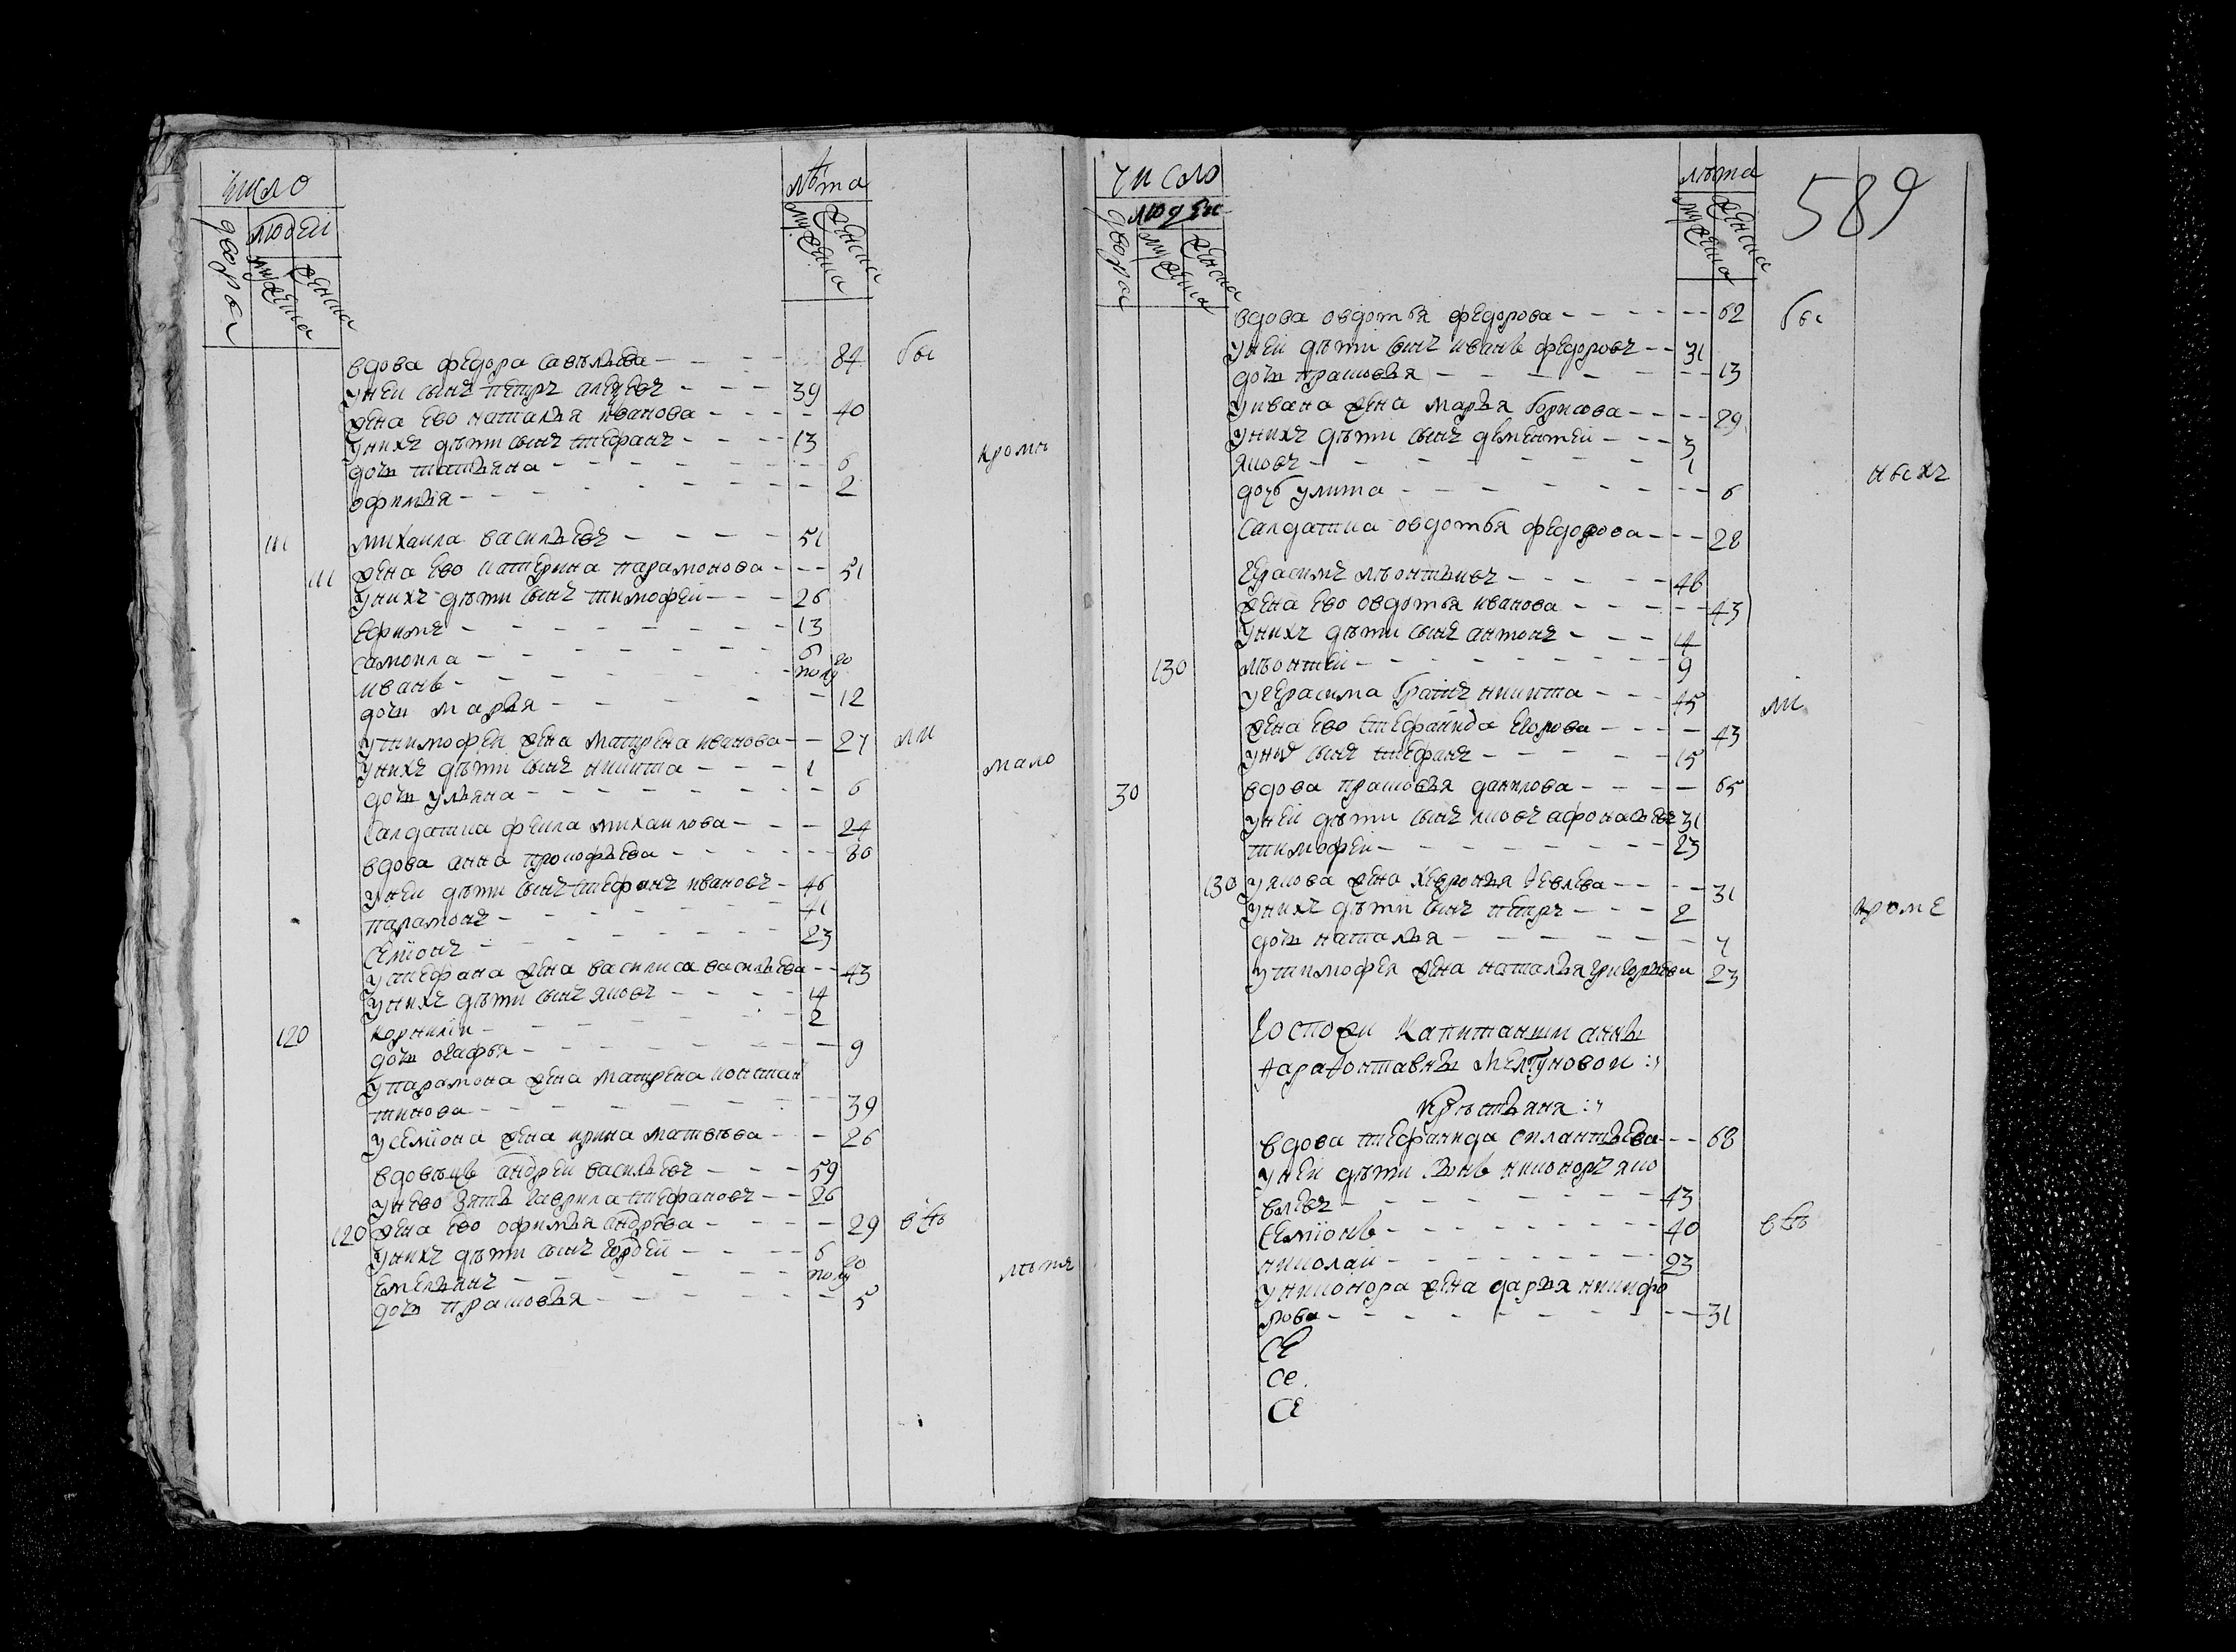 число
лѣта
двора
людей
мужеска
женска
мужеска
женска
вдова федора савѣльева 84 бы
у ней сынъ петръ алеѯѣевъ 39
жена ево наталья иванова 40
у нихъ дѣти сынъ стефанъ 13
дочь татьяна 6 кромѣ
офимья 2
111 михаила васильевъ 51
111 жена ево катерина парамонова 51
у нихъ дѣти сынъ тимофеи 26
ефимъ 13
самоила 6
иванъ полу го
дочь марья 12
у тимофеи жена матрена иванова 27 ли
у нихъ дѣти сынъ никита 1 мало
дочь ульяна 6
салдатка фекла михаилова 24
вдова анна прокофьева 80
у неи дѣти сынъ стефанъ ивановъ 46
парамонъ 41
семіонъ 23
у стефана жена василиса васильева 43
у нихъ дѣти сынъ яковъ 14
120 корнилѣи 2
дочь огафья 9
у парамона жена матрена констан
тинова 39
у семіона жена ирина матвѣева 26
вдовецъ андреи васильевъ 59
у нево зять гаврила стефановъ 26
120 жена ево офимья андрева 29 в сѣ
у нихъ дѣти сынъ гордеи 6
емельянъ полу го лѣтъ
дочь прасковья 5
число
лѣта
589
двора
людеи
мужеска
женска
мужеска
женска
вдова овдотья федорова 62 бы
у неи дѣти сынъ иванъ федоровъ 31
дочь прасковья 13
у ивана жена марья борисова 29
у нихъ дѣти сынъ дементеи 3
яковъ 1
дочь улита 6 ныхъ
салдатка овдотья федорова 28
герасимъ лѣонтьивъ 46
жена ево овдотья иванова 43
у нихъ дѣти сынъ антонъ 14
130 лѣонтеи 9
у герасима братъ никита 45 ли
жена ево стефанида егорова 43
у них сынъ стефанъ 15
30 вдова прасковья данилова 65
у неи дѣти сынъ яковъ афонасьевъ 31
тимофеи 23
130 у якова жена хевронья 31
у нихъ дѣти сынъ петръ 2 кроме
дочь наталья 7
у тимофея жена наталья григорьева 23
госпожи капитанши анны
мелгуновои
крѣстьяня
вдова стефанида силантьева 68
у неи дѣти никоноръ яко
влевъ 43
семіонъ 40 в сѣ
николаи 23
у никонора жена дарья никифо
рова 31
се
се
се